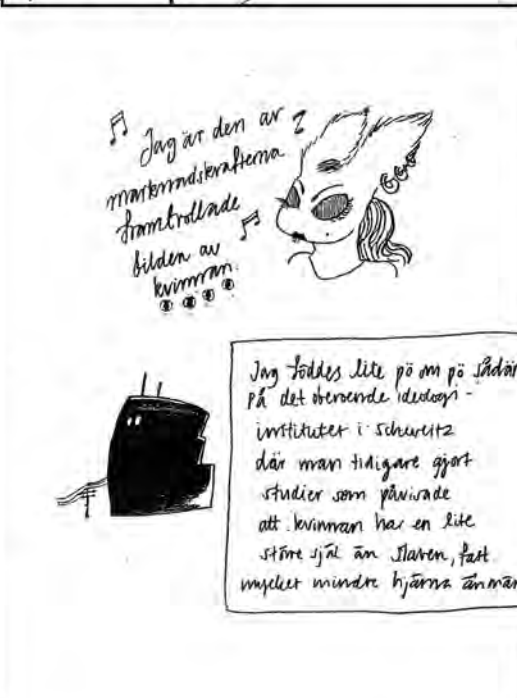 Jag är den av
marknadskrafterna
framtrollade
bilden av
kvinnan.
Jag föddes lite pö om pö sådär
på det oberoende ideologi-
institutet i Schweitz
där man tidigare gjort
studier som påvisade
att kvinnan har en lite
större själ än slaven, fast
mycket mindre hjärna än män